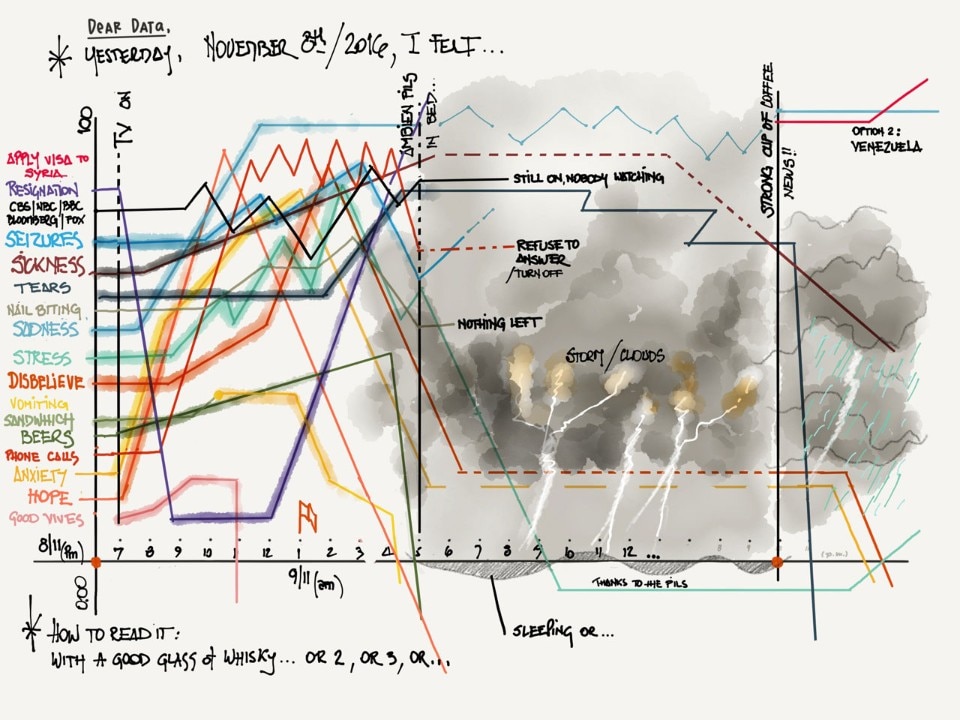 DEAR DATA,
* YESTERDAY, NOVEMBER 8th/2016, I FELT...
100
TV ON
AMBIEN PILS
IN BED...
STRONG CUP OF COFFEE
NEWS!!
OPTION 2:
VENEZUELA
APPLY VISA TO
SYRIA
RESIGNATION
CBS/NBC/BBC
BLOOMBERG/FOX
SEIZURES
SICKNESS
TEARS
NAIL BITING
SADNESS
STRESS
DISBELIEVE
VOMITING
SANDWHICH
BEERS
PHONE CALLS
ANXIETY
HOPE
GOOD VIVES
STILL ON, NOBODY WATCHING
REFUSE TO
ANSWER
/TURN OFF
NOTHING LEFT
STORM/CLOUDS
8/11 (pm) 7 8 9 10 11 12 1 2 3 4 5 6 7 8 9 10 11 12 ...
9/11 (am)
0,00
THANKS TO THE PILS
SLEEPING OR...
* HOW TO READ IT:
WITH A GOOD GLASS of WHISKY... OR 2, OR 3, OR...